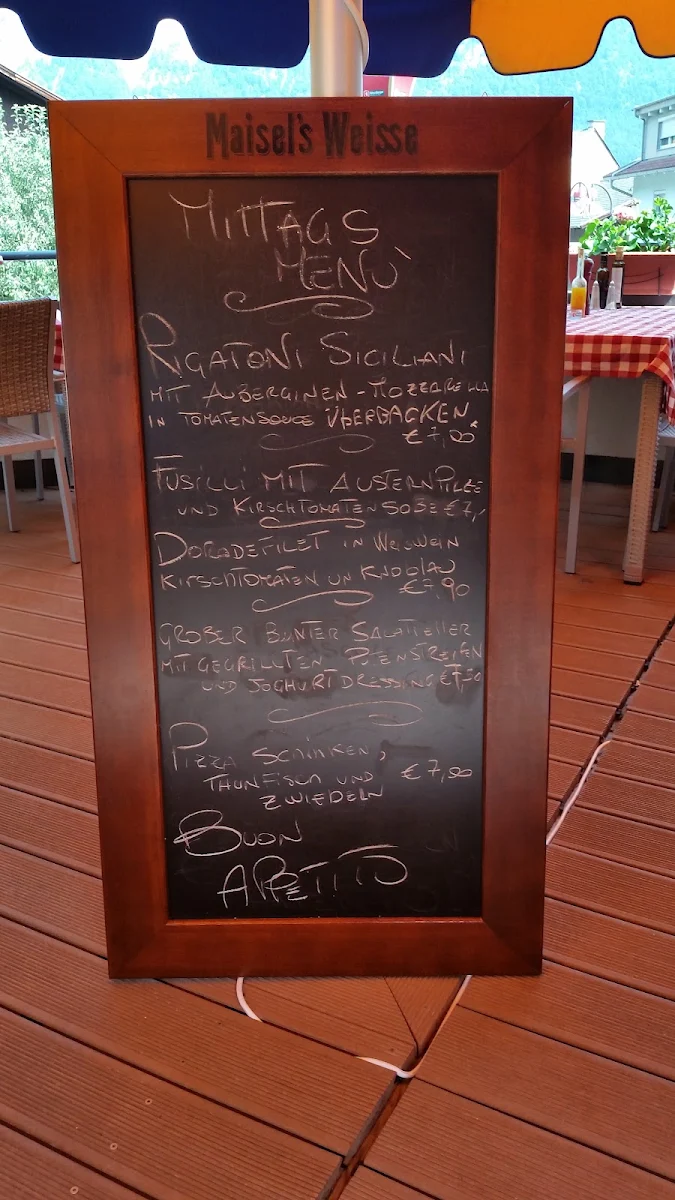 Maisel's Weisse
MITTAGS
MENÙ
RIGATONI SICILIANI
MIT AUBERGINEN - MOZZARELLA
IN TOMATENSOUCE ÜBERBACKEN
€ 7,00
FUSILLI MIT AUSTERNPILZE
UND KIRSCHTOMATEN SOßE € 7,
DORADEFILET IN WEIWEIN
KIRSCHTOMATEN UN KNOBLAU
€ 7,90
GROßER BUNTER SALATTELLER
MIT GEGRILLTEN PUTENSTREIFEN
UND JOGHURT DRESSING € 7,50
PIZZA SCHINKEN,
THUNFISCH UND € 7,00
ZWIEBELN
BUON
APPETITO